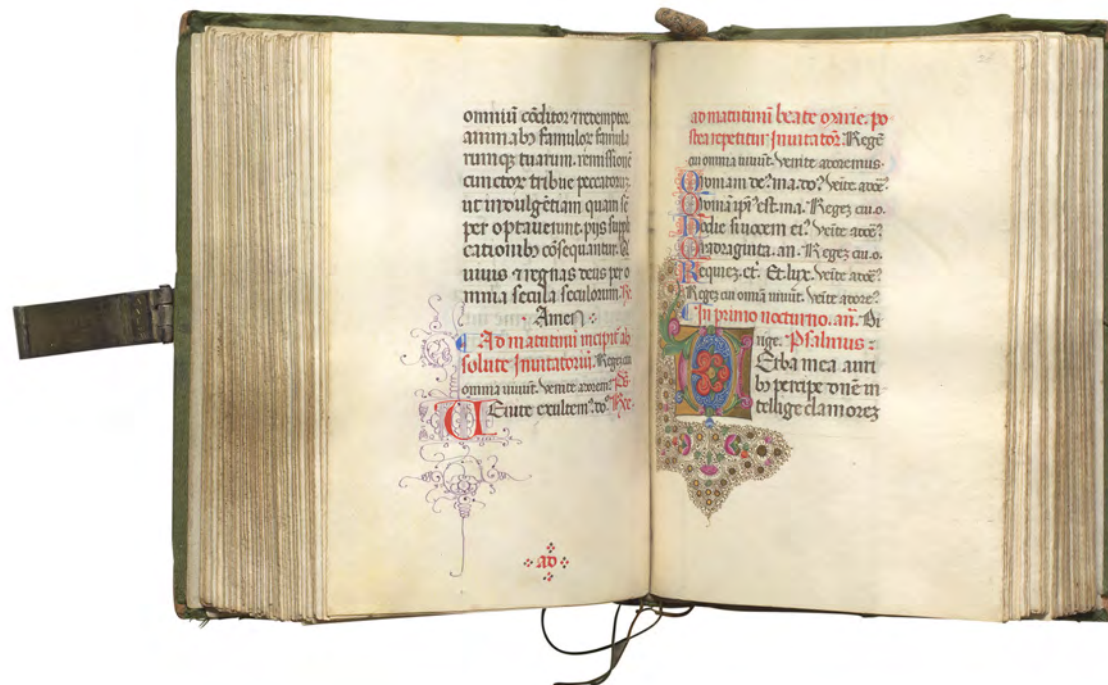 omniũ cõditor ⁊ redemptor
animabꝫ famuloꝝ famula
rumqꝫ tuarum. remissionẽ
cunctoꝝ tribue peccatorũ
ut indulgẽtiam quam sẽ
per optauerunt. pijs suppli
cationibꝫ cõsequantur. Q̃
uiuis ⁊ regnas deus per o
mnia secula seculorum. ℞
Amen
Ad matutinũ incipit ab
solute Jnuitatoriũ. Regẽ cui
omnia uiuũt. venite adorem? Ps.
VEnite exultem?. do?
ad
ad matutinũ beate marie. po
stea repetitur Jnuitatoꝝ. Regẽ
cui omnia uiuũt. Venite adoremus.
Quoniam de? ma. do? Veĩte adoẽ?
Quoniã ipi? est. ma. Regeꝫ cui. o.
Hodie si uocem ei? Veĩte adoẽ?
Quadraginta. an. Regeꝫ cui. o.
Requieꝫ. et̃. Et lux. Veĩte adoẽ?
Regeꝫ cui omniã uiuũt. Veĩte adore?
In primo nocturno. añ. Di
rige. Psalmus:
Erba mea auri
bꝫ percipe dñe in
tellige clamoreꝫ